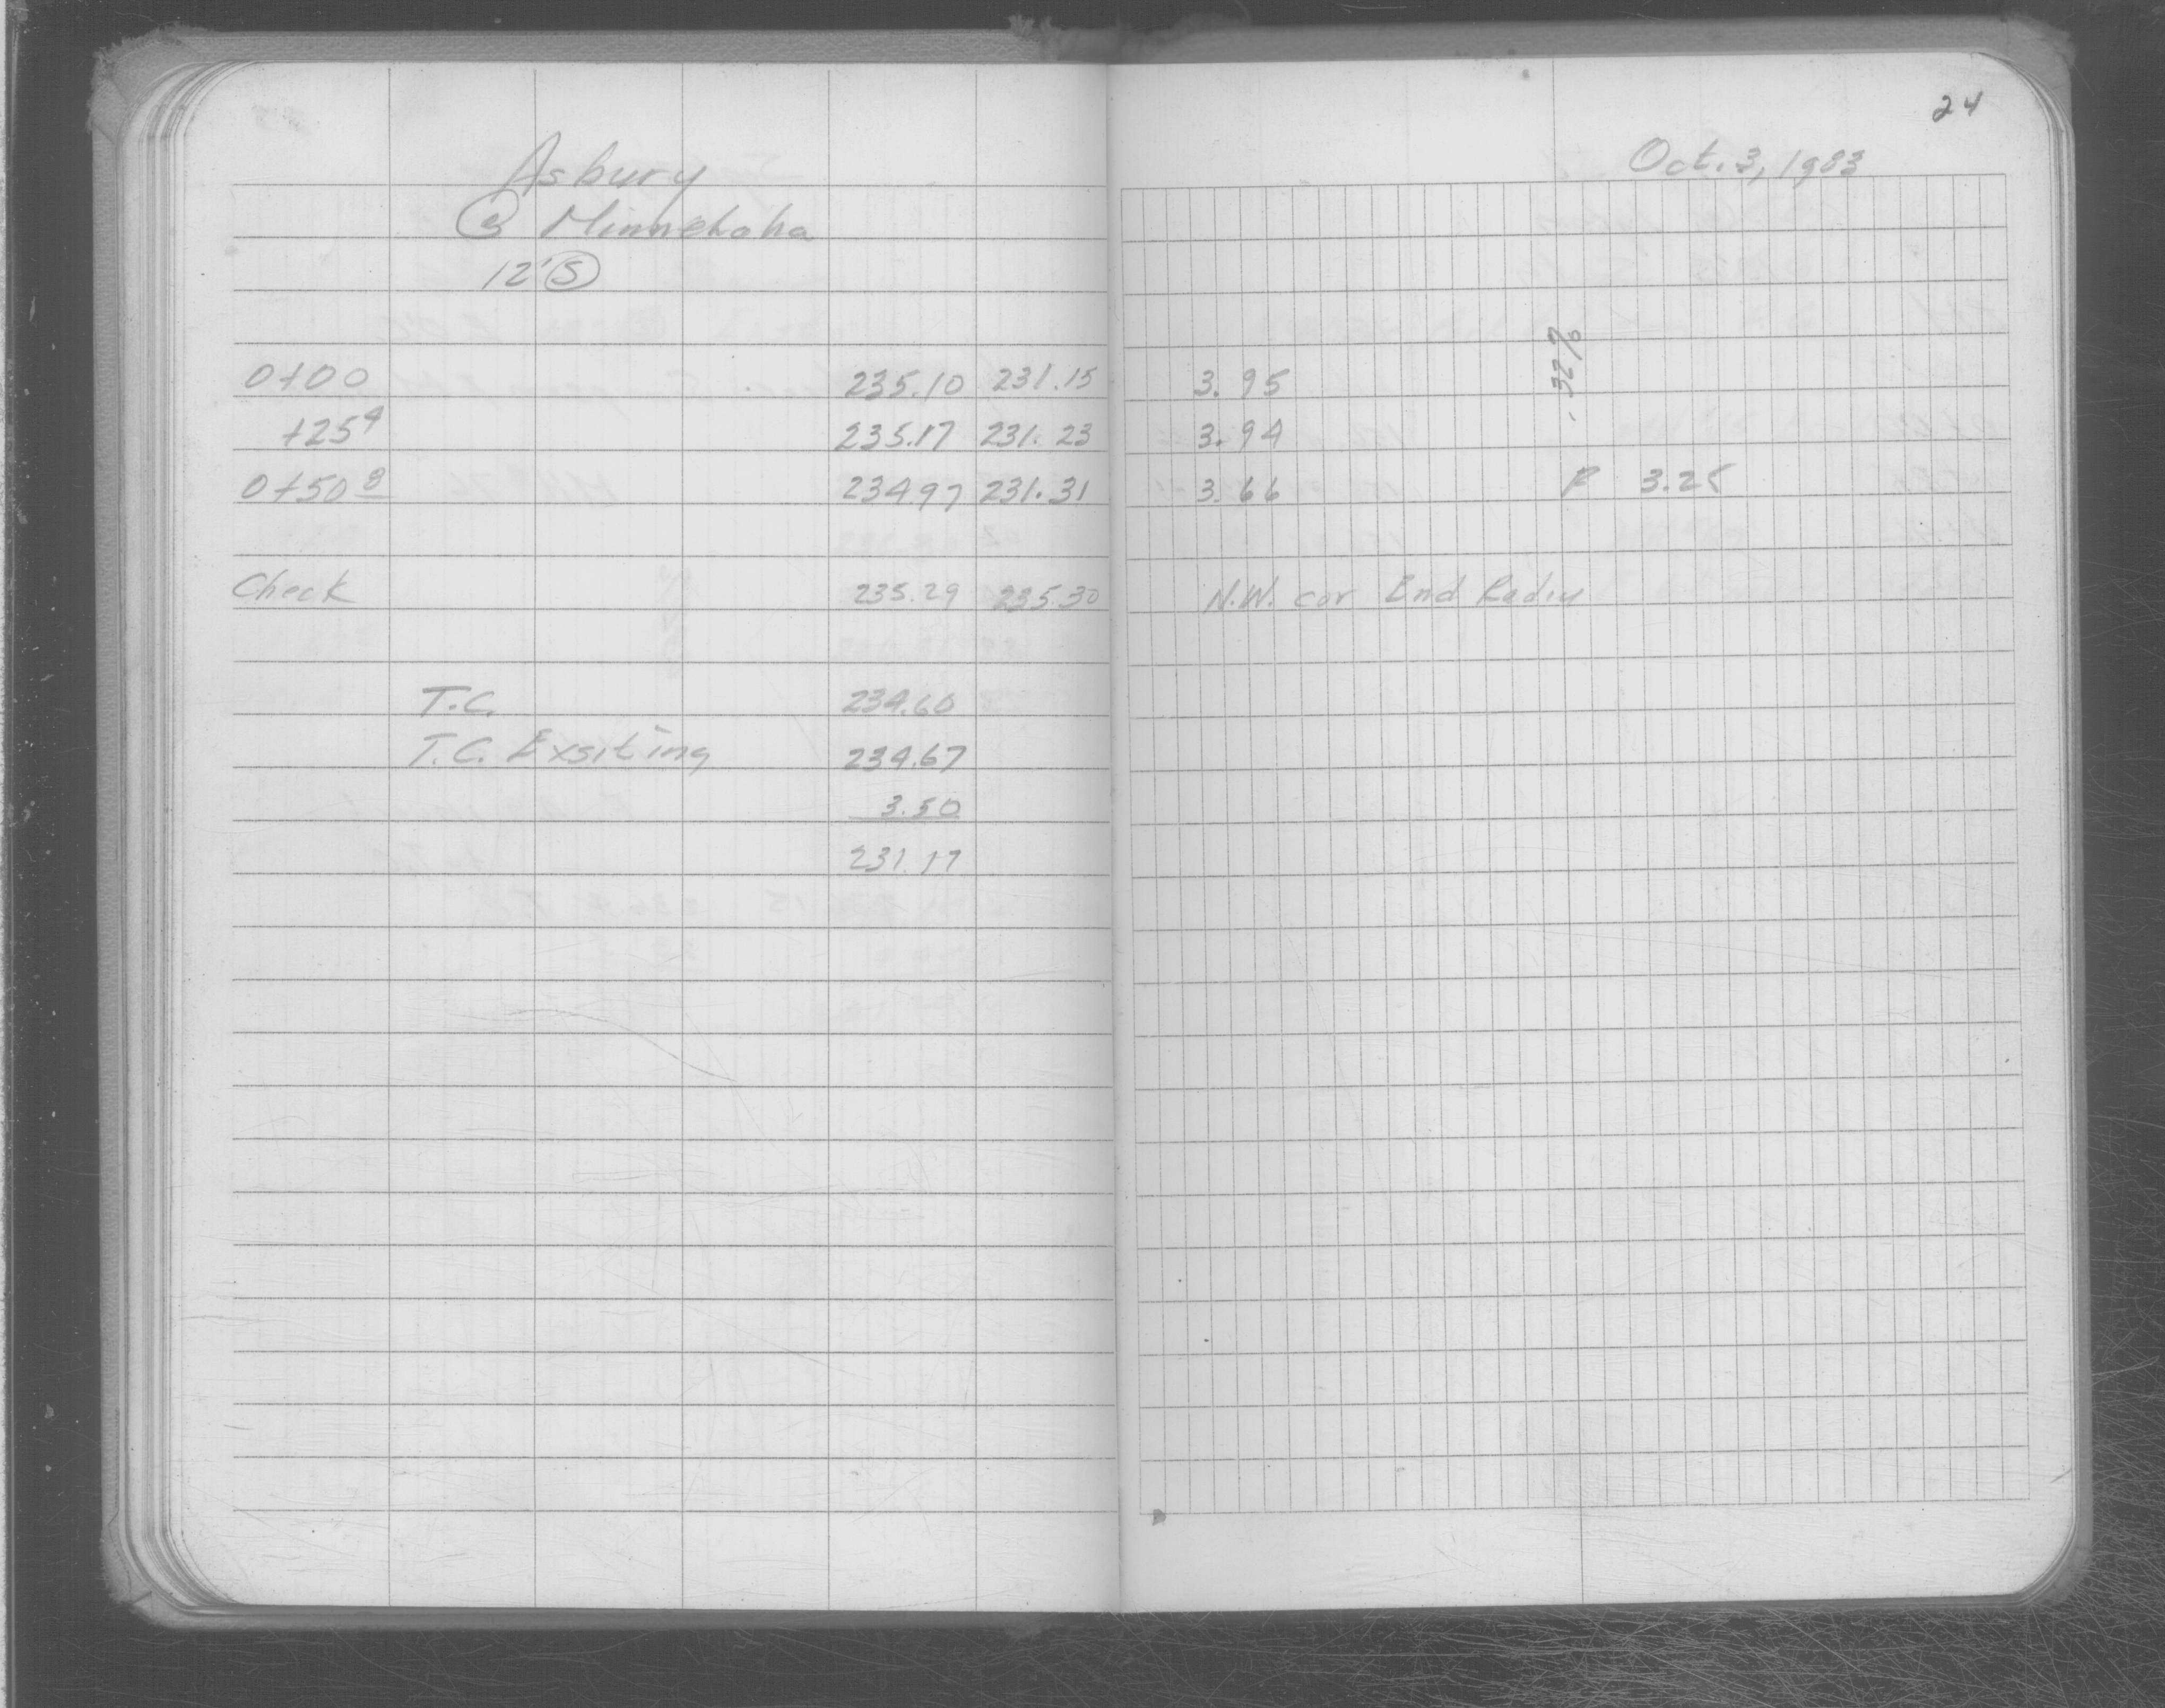 24
Oct. 3, 1983
Asbury
@ Minnehaha
12' S
.32%
0+00 235.10 231.15 3.95
+25 4 235.17 231.23 3.94
0+50 8 234.97 231.31 3.66 3.25
Check 235.29 235.30 N.W. cor End Radiu
T.C. 234.60
T.C. Exsiting 234.67
3.50
231.17